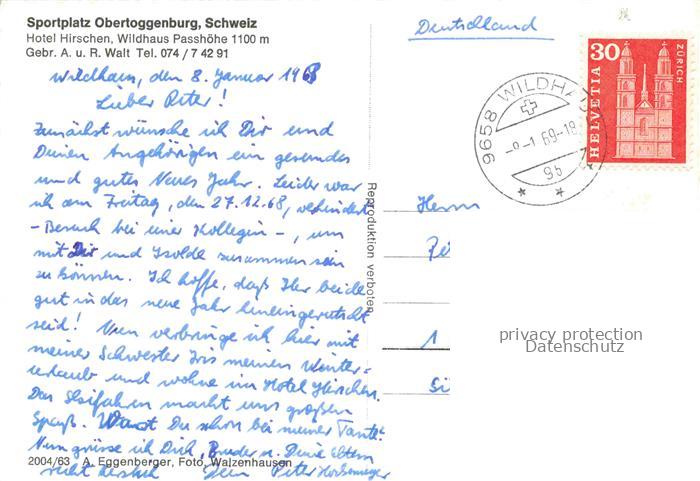 Sportplatz Obertoggenburg, Schweiz
Hotel Hirschen, Wildhaus Passhöhe 1100 m
Gebr. A. u. R. Walt Tel. 074 / 7 42 91
Wildhaus, den 8. Januar 196
Lieber Peter!
Zunächst wünsche ich Dir und
Deinen Angehörigen ein gesundes
und gutes Neues Jahr. Leider war
ich am Freitag, den 27.12.68, verhindert
- Besuch bei einer Kollegin -, um
mit Dir und Isolde zusammen sein
zu können. Ich hoffe, daß Ihr beide
gut in das neue Jahr hineingerutscht
seid! Nun verbringe ich hier mit
meiner Schwester Iris meinen Winter=
urlaub und wohne im Hotel Hirschen.
Das Skifahren macht uns großen
Spaß. Warst Du schon bei meiner Tante?
Nun grüsse ich Dich, Bruder u. Deine Eltern
recht herzlich Dein Peter
2004/63 A. Eggenberger, Foto, Walzenhausen
Reproduktion verboten
Deutschland
9658 WILDHA
-8-1 69-18
9b
30
HELVETIA
ZÜRICH
Herrn
Pe
1
Si
privacy protection
Datenschutz